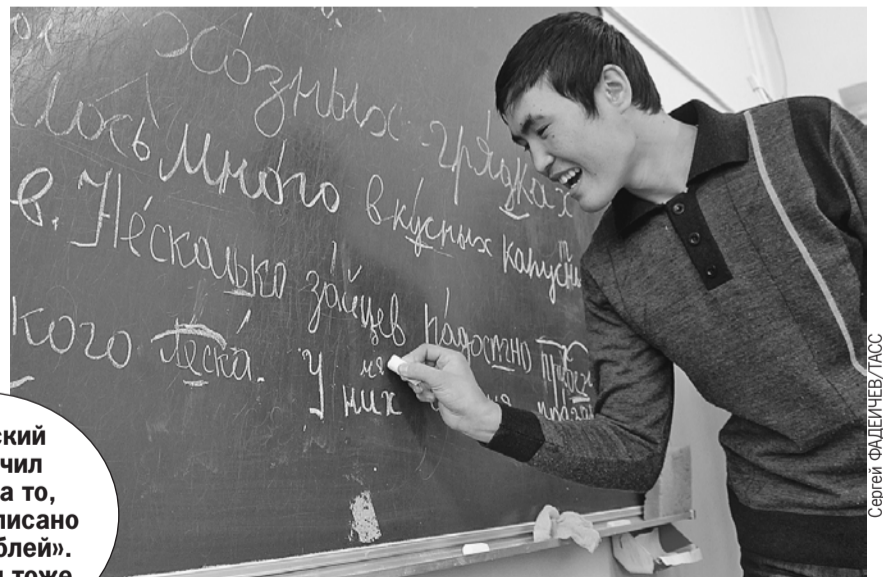 зных грядках
лось много вкусных капустн
в. Несколько зайцев радостно
кого леска. У
них
ский
чил
а то,
писано
блей».
тоже
Сергей ФАДЕИЧЕВ/ТАСС